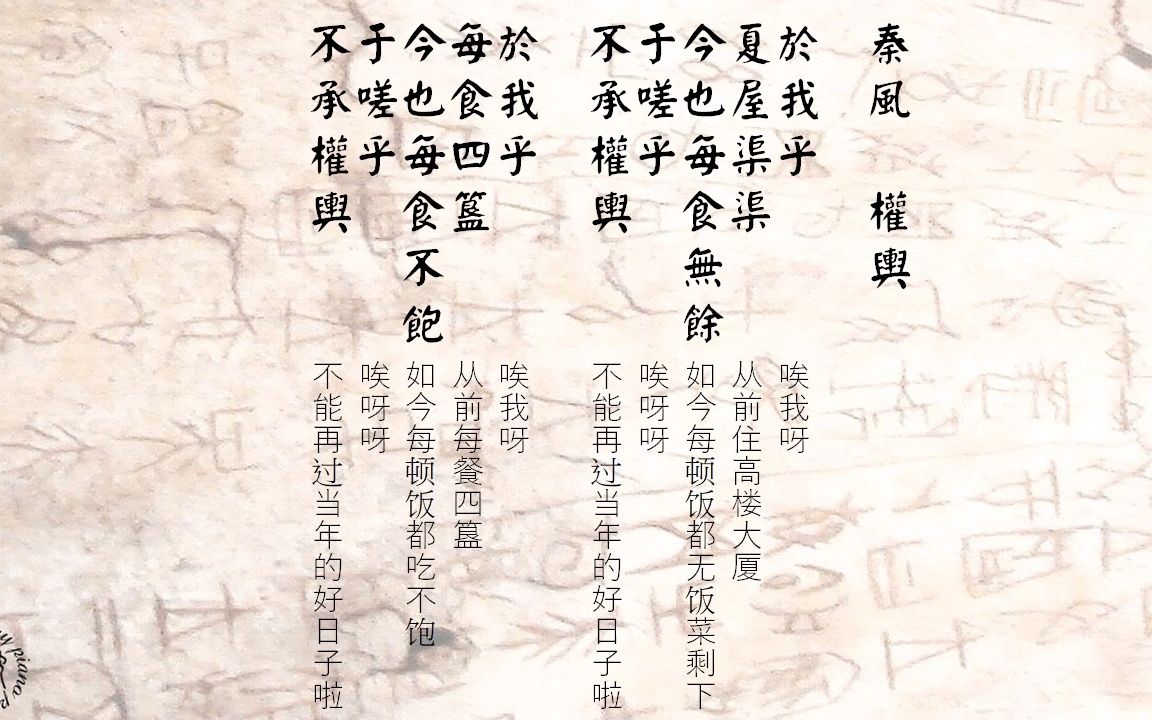 秦風 權輿
於我乎
夏屋渠渠
今也每食無餘
于嗟乎
不承權輿
唉我呀
从前住高楼大厦
如今每顿饭都无饭菜剩下
唉呀呀
不能再过当年的好日子啦
於我乎
每食四簋
今也每食不飽
于嗟乎
不承權輿
唉我呀
从前每餐四簋
如今每顿饭都吃不饱
唉呀呀
不能再过当年的好日子啦
piano